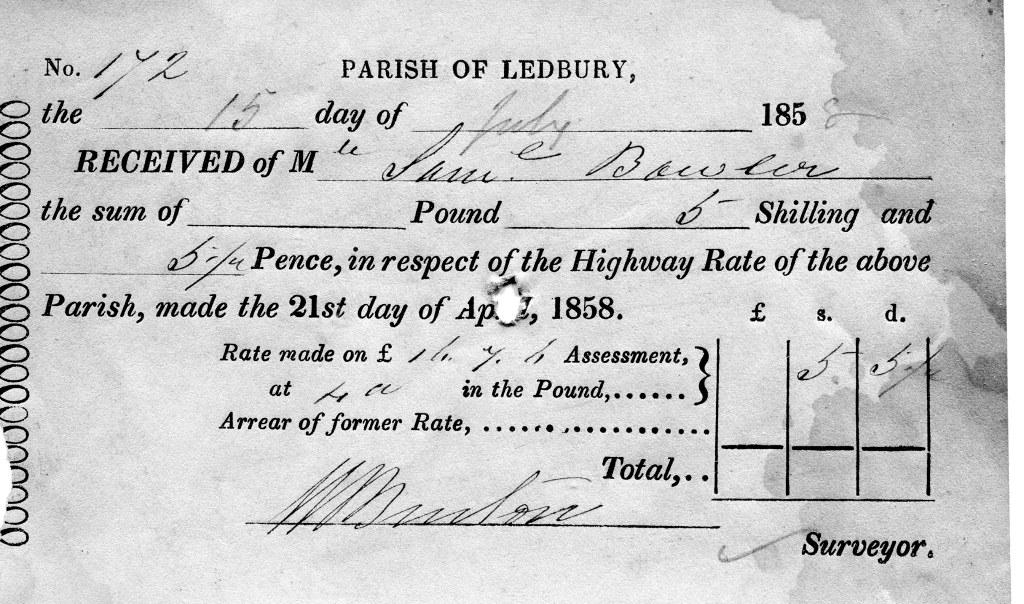 No. 172 PARISH OF LEDBURY,
the 15 day of July 1858
RECEIVED of M Saml. Bowler
the sum of Pound 5 Shilling and
5 1/2 Pence, in respect of the Highway Rate of the above
Parish, made the 21st day of Ap , 1858.
£ s. d.
Rate made on £ 16. 7. 6 Assessment, 5 5 1/2
at 4d in the Pound,......
Arrear of former Rate, ..................
Total,..
Surveyor.